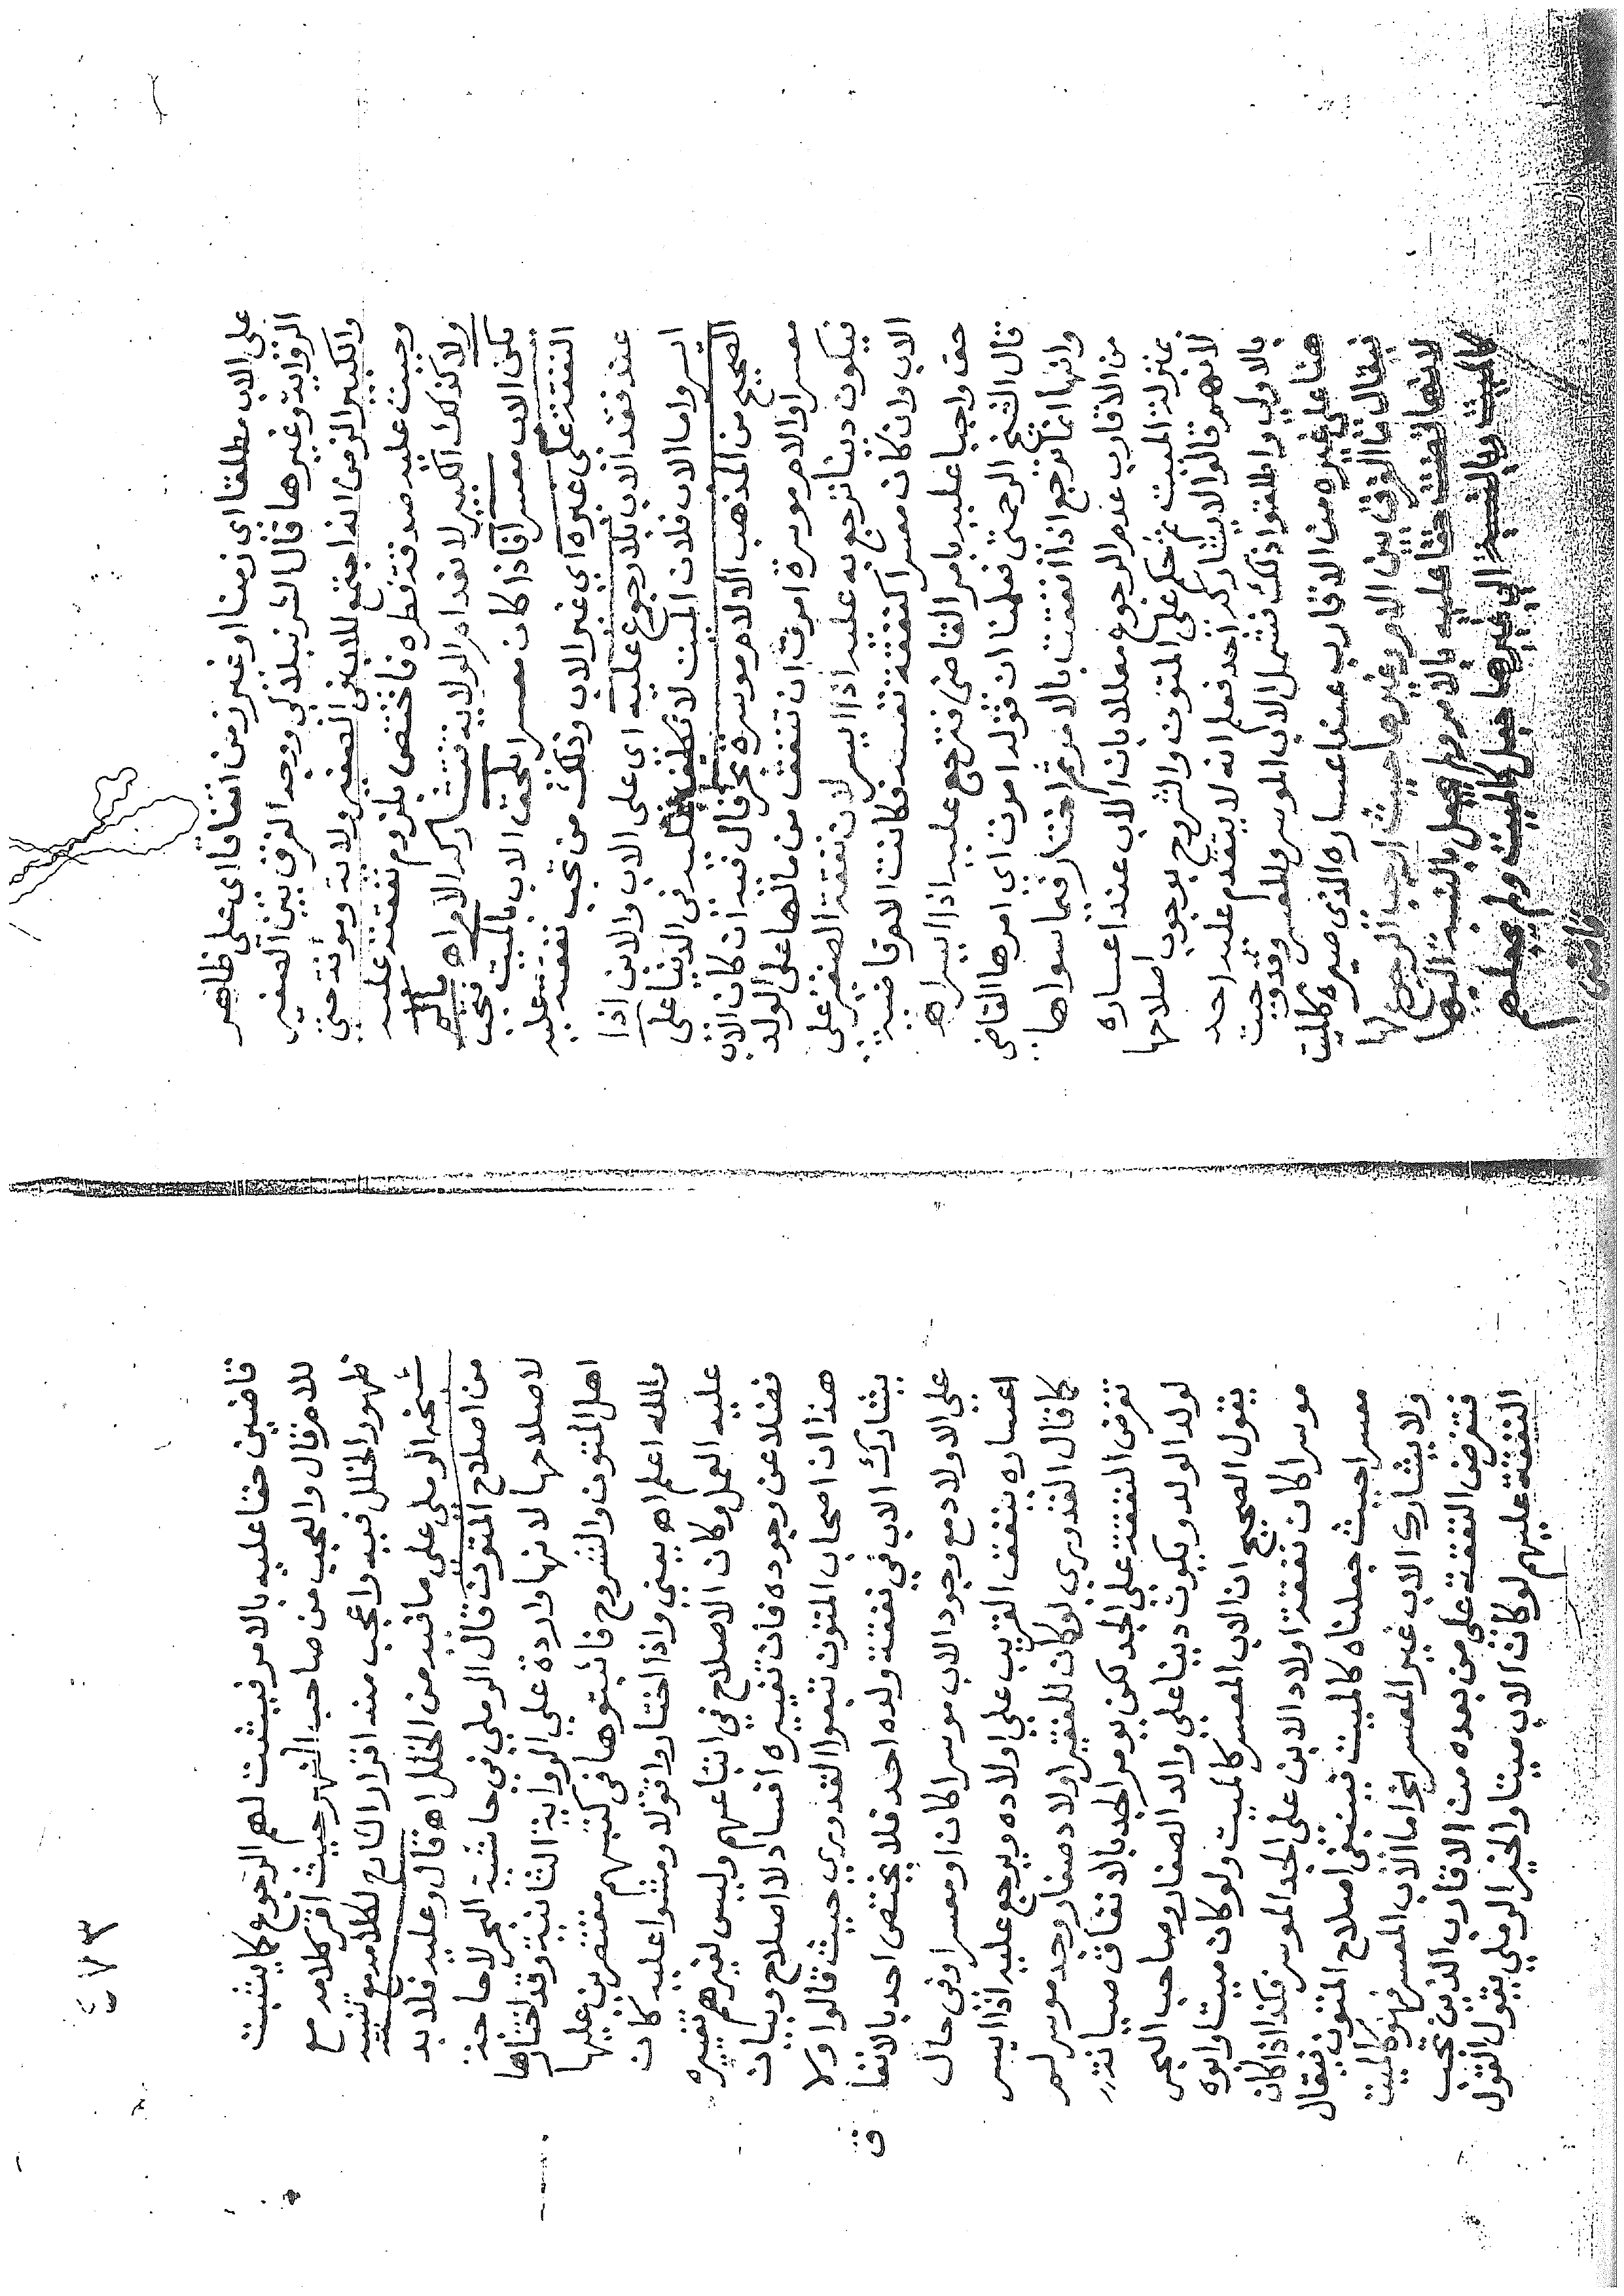 على الاب مطلقا اي زمنا او غير زمن اتفاقا اي على ظاهر
الرواية وغيرها قال الشرنبلالي ووجه الفرق بين الصغير
والكبير الزمن انه اجتمع للاب في الصغير ولاية ومؤنة حتى
وجبت عليه صدقة فطره فاختص بلزوم نفقته عليه
ولا كذلك الكبير لانعدام الولاية فتشاركه الام اه ما لم
يكن الاب معسرا فاذا كان معسرا يلحق الاب بالميت فتجب
النفقة على غيره اي غير الاب وذلك من تجب نفقته عليه
عند فقد الاب بلا رجوع عليه اي على الاب والابن اذا
ايسر واما الاب فلان الميت لا تكليف عليه في الدنيا على
الصحيح من المذهب الا لام موسرة بحر قال فيه ان كان الاب
معسرا والام موسرة امرت ان تنفق من مالها على الولد
فيكون دينا ترجع به عليه اذا ايسر لان نفقة الصغير على
الاب وان كان معسرا كنفقة نفسه فكانت الام قاضية
حقا واجبا عليه بامر القاضي فترجع عليه اذا ايسر اه
قال الشيخ الرحمتي فعلمنا ان قوله امرت اي امرها القاضي
وانها انما ترجع اذا انفقت بالامر ثم اختار فيما سواها
من الاقارب عدم الرجوع معللا بان الاب عند اعساره
بمنزلة الميت ثم حكم على المتون والشروح بوجوب اصلاحها
لانهم قالوا لا يشاركه احد فعلم انه لا يتقدم عليه احد
بالاولى واطلقوا ذلك فشمل الاب الموسر والمعسر وقد وجبت
هنا على غيره من الاقارب عند اعساره الذي صيره كالميت
فيقال ما الفرق بين الام وغيرها حيث اثبت الرجوع لها
لانها قضت حقا عليه بالامر ولم يجعل بالنسبة اليها
كالميت وبالنسبة الى غيرها جعل كالميت ولم يجعلهم
قاضين
٤٧٣
قاضين حقا عليه بالامر فيثبت لهم الرجوع كما يثبت
للام قال والعجب من صاحب النهر حيث اقر كلامه مع
ظهور الخلل فيه واعجب منه اقرار الشارح لكلامه مع تنبيه
شيخه الرملي على ما فيه من الخلل اه قال وعليه فلا بد
من اصلاح المتون قال الرملي في حاشية البحر لا حاجة
لاصلاحها لانها واردة على الرواية الثانية وقد اختارها
اهل المتون والشروح فاثبتوها في كتبهم مقتصرين عليها
والله اعلم اه يعني واذا اختاروا قولا ومشوا عليه كان
عليه العمل وكان الاصلاح في اتباعهم وليس لغيرهم تغييره
فضلا عن وجوده فان تغييره افساد لا اصلاح وبيان
هذا ان اصحاب المتون تبعوا القدوري حيث قالوا ولا
يشارك الاب في نفقة ولده احد فلا يختص احد بالانفا
ق
على الاولاد مع وجود الاب موسرا كان او معسرا وفي حال
اعساره ينفق القريب على اولاده ويرجع عليه اذا ايسر
كما قال القدوري لو كان للفقير اولاد صغار وجد موسر لم
تفرض النفقة على الجد لكن يومر الجد بالانفاق صيانة
لولد الولد ويكون دينا على والد الصغار وصاحب البحر
يقول الصحيح ان الاب المعسر كالميت ولو كان ميتا وابوه
موسرا كان نفقة اولاد الابن على الجد الموسر فكذا اذا كان
معسرا حيث جعلناه كالميت فينبغي اصلاح المتون فيقال
ولا يشارك الاب غير المعسر الخ اما الاب المعسر فهو كالميت
فتفرض النفقة على من بعده من الاقارب الذين تجب
النفقة عليهم لو كان الاب ميتا والخير الرملي يقول القول